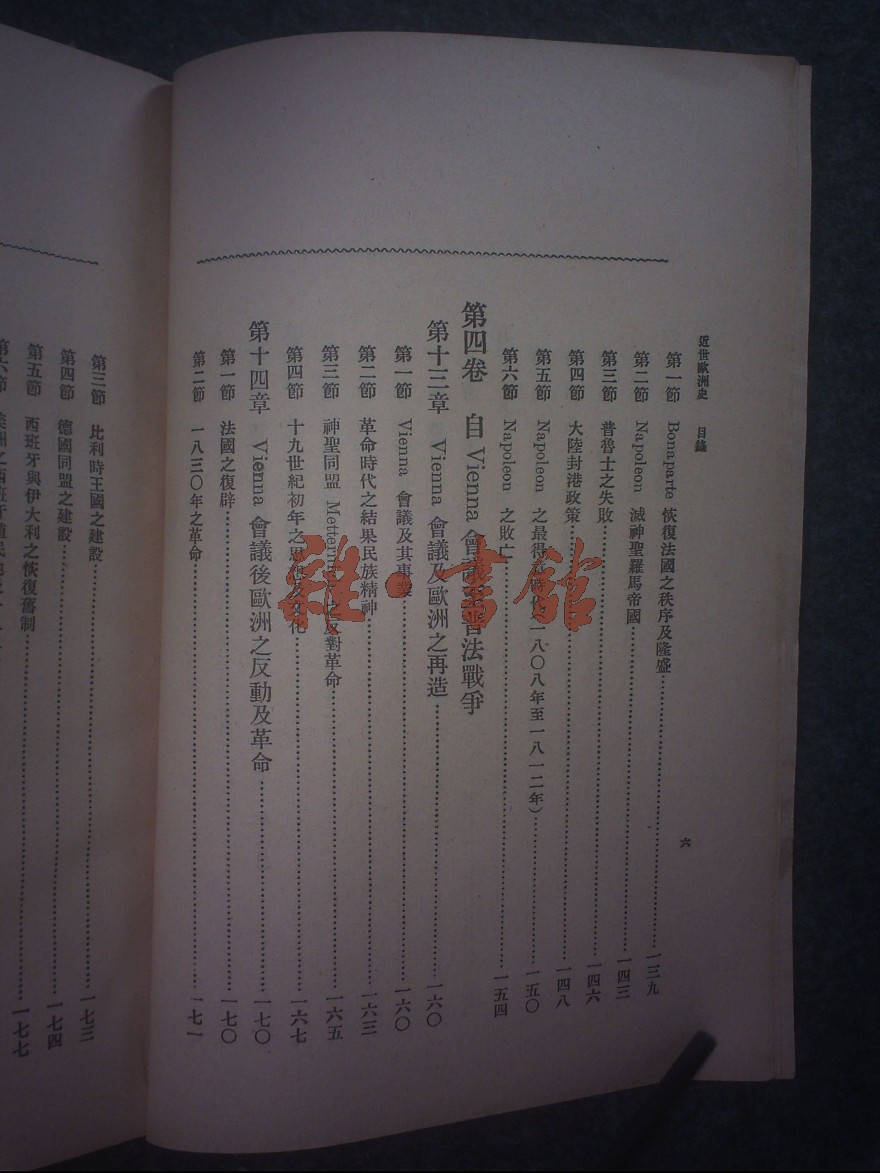 近世歐洲史 目錄 六
第一節 Bonaparte 恢復法國之秩序及隆盛 一三九
第二節 Napoleon 滅神聖羅馬帝國 一四三
第三節 普魯士之失敗 一四六
第四節 大陸封港政策 一四八
第五節 Napoleon 之最得意時代(一八〇八年至一八一二年) 一五〇
第六節 Napoleon 之敗亡 一五四
第四卷 自 Vienna 會議至普法戰爭
第十三章 Vienna 會議及歐洲之再造 一六〇
第一節 Vienna 會議及其事業 一六〇
第二節 革命時代之結果民族精神 一六三
第三節 神聖同盟 之反對革命 一六五
第四節 十九世紀初年之思想及文化 一六七
第十四章 Vienna 會議後歐洲之反動及革命 一七〇
第一節 法國之復辟 一七〇
第二節 一八三〇年之革命 一七一
第三節 比利時王國之建設 一七三
第四節 德國同盟之建設 一七四
第五節 西班牙與伊大利之恢復舊制 一七七
第六節
雜·書館